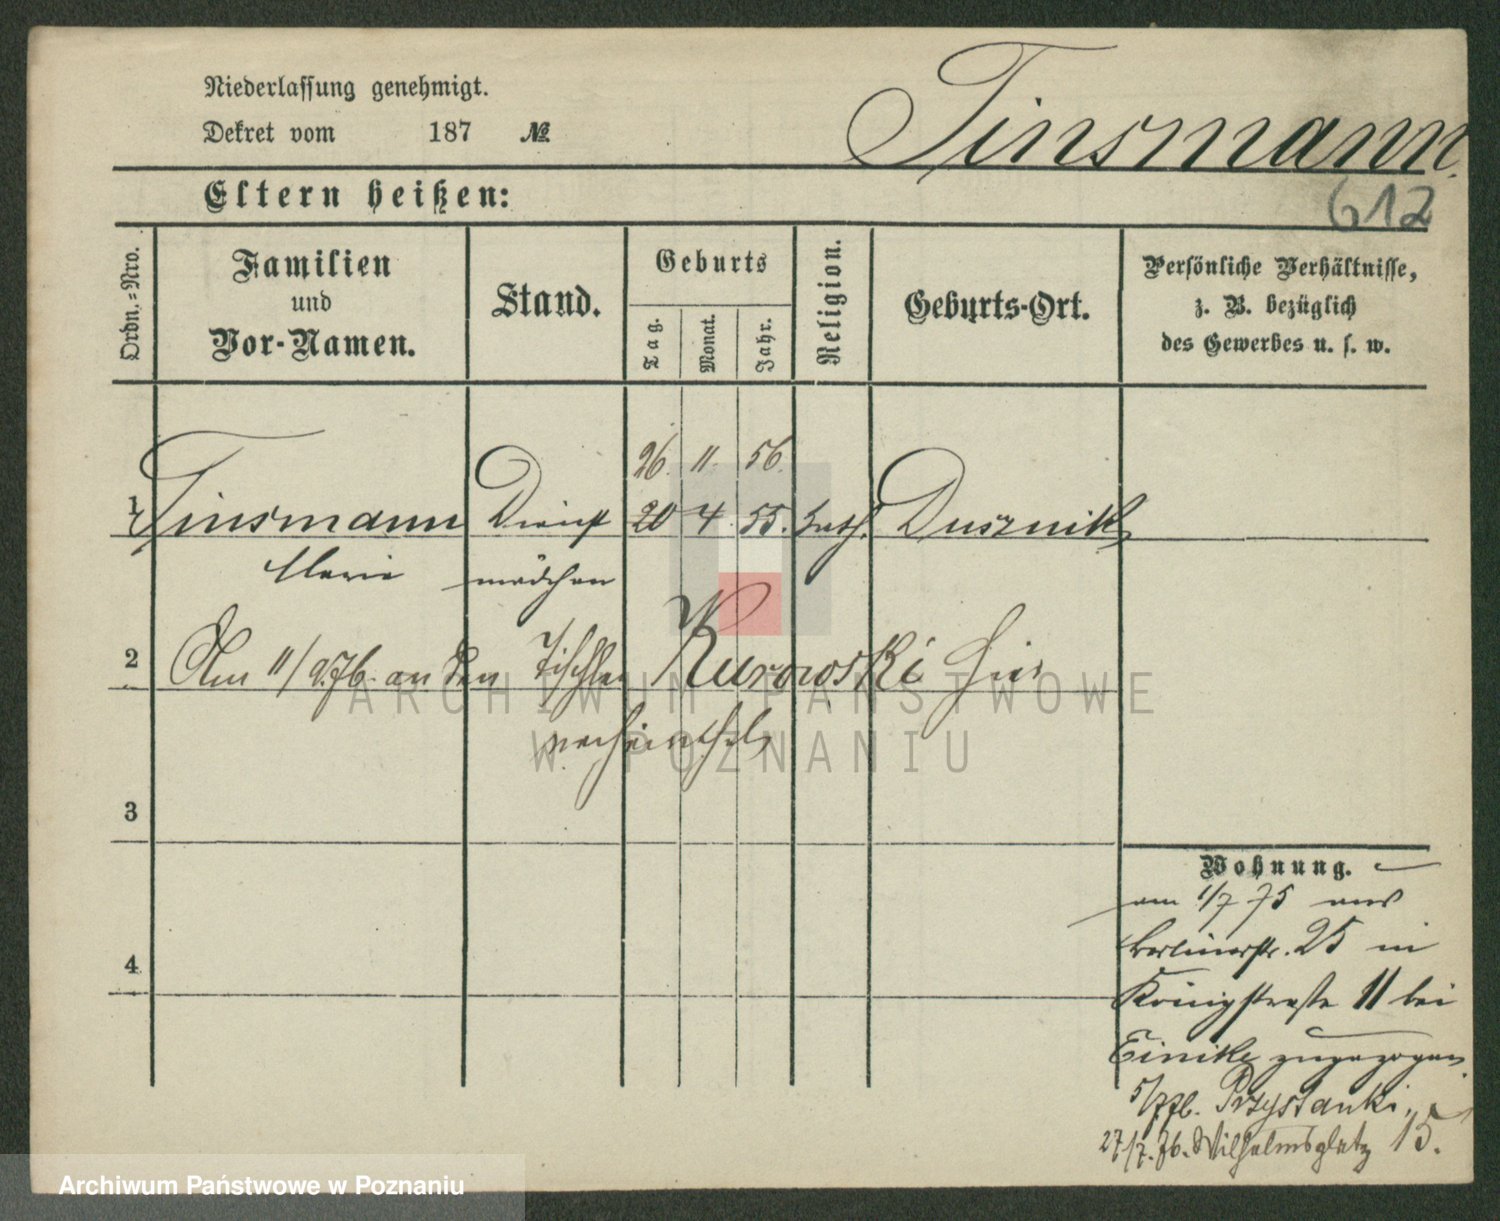 Niederlassung genehmigt.
Dekret vom 187 №
Tinsmann.
612
Eltern heißen:
Ordn.-Nro.
Familien
und
Vor-Namen.
Stand.
Geburts
Tag.
Monat.
Jahr.
Religion.
Geburts-Ort.
Persönliche Verhältnisse,
z. B. bezüglich
des Gewerbes u. s. w.
26. 11. 56.
1 Tinsmann Dienst 20 4 55. kath. Dusznik
Marie mädchen
2 Am 11/9.76. an den Tischler Kurowski hier
verheirathet
3
4
Wohnung.
am 1/7 75 aus
Berlinerstr. 25 in
Königstraße 11 bei
Einike zugezogen.
Przystanki.
27/7.76. Wilhelmsplatz 15.
ARCHIWUM PAŃSTWOWE
W POZNANIU
Archiwum Państwowe w Poznaniu